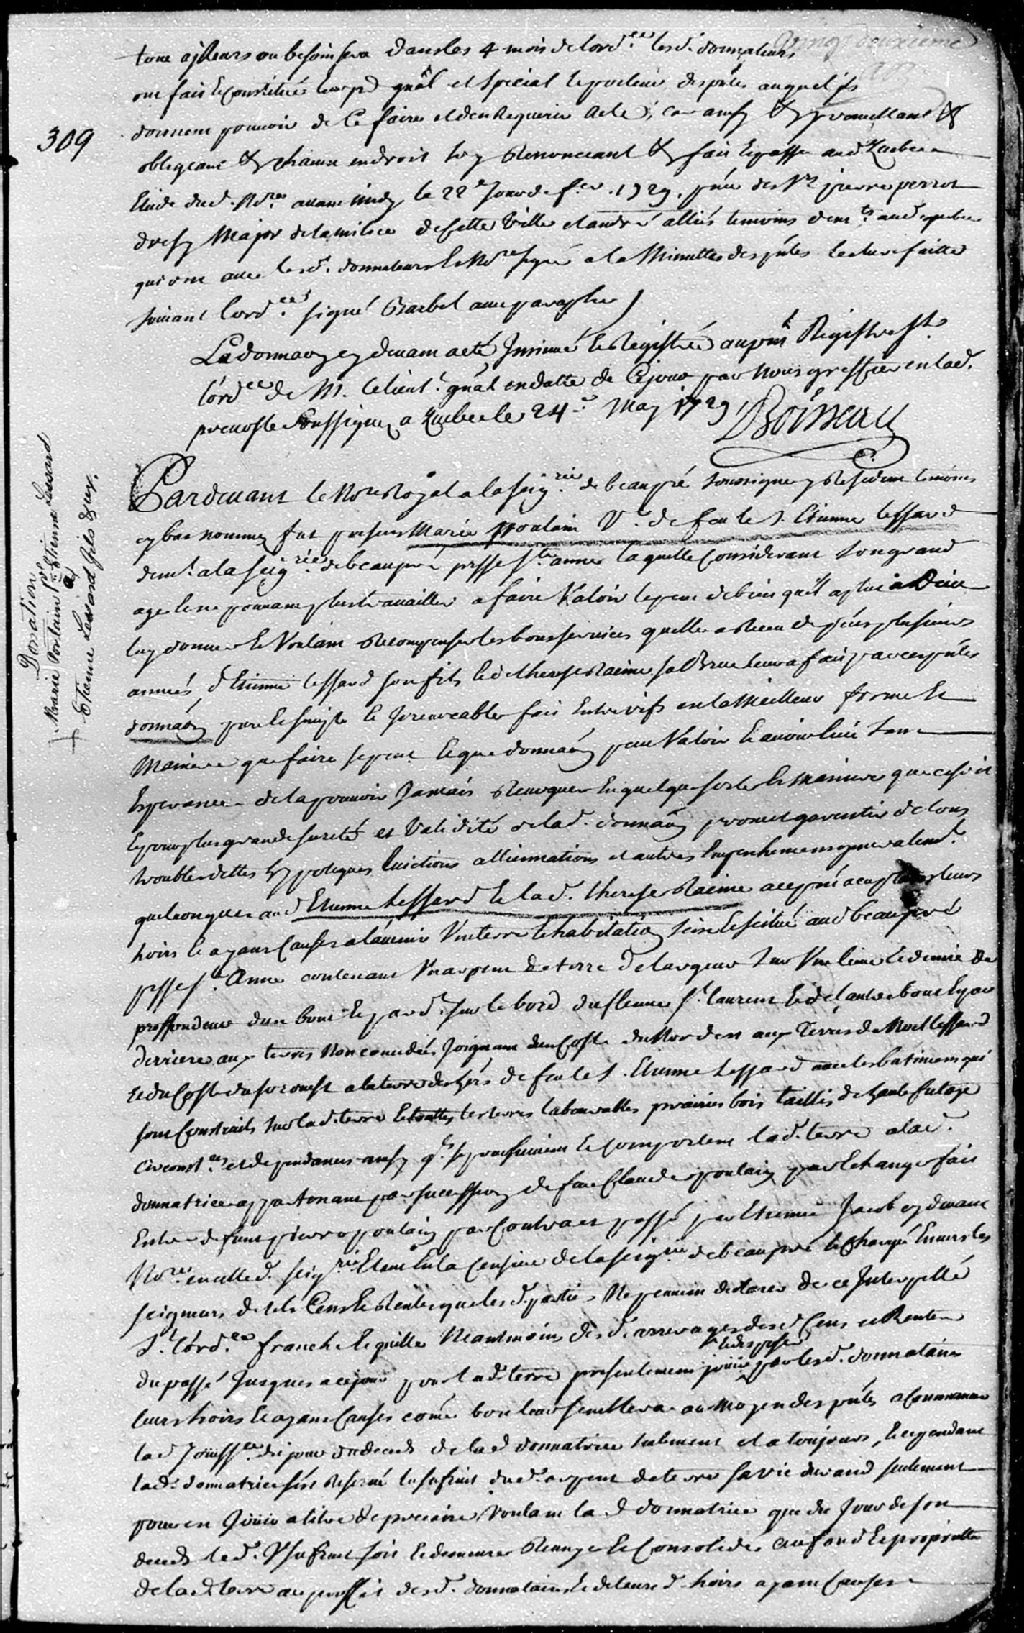 309
tous ailleurs ou besoin sera dans les 4 mois de lord.ce les d. donnateurs
ont fait & constitué leur pr gñal et special le porteur des ptes auquel ils
donnent pouvoir de ce faire et den Requerir acte, car ainsy & promettant &
obligeant & chacun endroit soy Renonceant & fait & passé aud Quebec
Etude dud. No.re avant midy le 22.e Jour de f.er 1729. pñce des Srs pierre perrot
derisy Major de la milice de cette Ville et andré alliés temoins dem.ts aud quebec
qui ont avec les d. donnateurs & No.re signé a la Minutte des ptes lecture faitte
suivant lord.ce signé Barbel avec paraphe
La donnaõn cy devant a eté Insinuée & Registrée au pnt Registre St.
lord.ce de M. le lieut.t gñal en datte de ce jour par Nous greffier en lad.
prevosté soussigné a Quebec le 24.e May 1729
Boisseau
Donation
Marie Poulain V.e Etienne Lessard
à
Etienne Lessard fils & ux.
Pardevant le No.re Royal a la Seig.rie de beaupré soussigné y Residant & temoins
cy bas nommez fut presente Marie poulain V.e de feu le S. Etienne lessard
dem.t a la Seig.rie de beaupré p.sse S.te anne laquelle Considerant son grand
age & ne pouvant plus travailler a faire Valoir le peu de bien quil a plu a Dieu
luy donner & Voulant Recompenser les bons services quelle a Receu depuis plusieurs
années d'Etienne lessard son fils & de therese Racine sa Brue leur a fait par ces ptes
donnaõn pure & simple & Irrevocable fait Entre vifs en la Meilleur forme &
Maniere que faire se peut & que donnaõn peut Valoir & avoir lieu sans
Esperance de la pouvoir Jamais Revoquer En quelque sorte & Maniere que ce soit
& pour plus grande sureté et Validité de lad. donnaõn promet garentir de tous
troubles dettes hypoteques Evictions allienations et autres Empechemens generalem.t
quelconques aud Etienne Lessard & lad. therese Racine ace pñt acceptans leurs
hoirs & ayans Causes a l'avenir Une terre & habitation size & scitué aud beaupré
p.sse S.te Anne contenant Un arpent de terre de largeur sur Une lieue & demie de
proffondeur dun bout Le par d. sur le bord du fleuve S.t laurent & de l'autre bout & par
derriere aux terres Non concedées Joignant dun Costé du Nordest aux Terres de Noel lessard
Et du Costé du surouest a la terre des hers de feu le S. Etienne Lessard avec les batimens qui
sont Construits sur lad terre & touttes les terres labourables prairies bois taillis de haute futaye
Circonst.ces et dependances ainsy q.ls se poursuivent & comportent lad.e terre a lad.
donnatrice appartenant par succession de feu Claude poulain par Echange fait
Entre defunt pierre poulain par Contract passé par Etienne Jacob cy devant
No.re en cette d. Seig.rie Etant En la Censive de la seig.rie de beaupré & Chargé Envers les
seigneurs de tels Cens & Rentes que les d. parties Ne peuvent declarer de ce Interpellé
S.t lord.ce franche & quitte Neantmoins des d. arrerages des d Cens et Rentes
du passé Jusques a ce jour pour lad.e terre presentement jouir & disposer par les d. donnataires
leurs hoirs & ayans Causes comme bon leur semblera au Moyen des ptes a Commencer
lad Jouiss.ce du jour du deceds de lad donnatrice seulement et a toujours, & cependant
lad. donnatrice sest Reservé lusufruit dud. arpent de terre sa vie durant seulement
pour en Jouir a titre de precaire Voulant la d donnatrice que du Jour de son
deceds led. Usufruit soit & demeure Reuny & Consolidé au fond & proprieté
de lad. terre au proffit des d. donnataires & de leurs d. hoirs ayans Causes